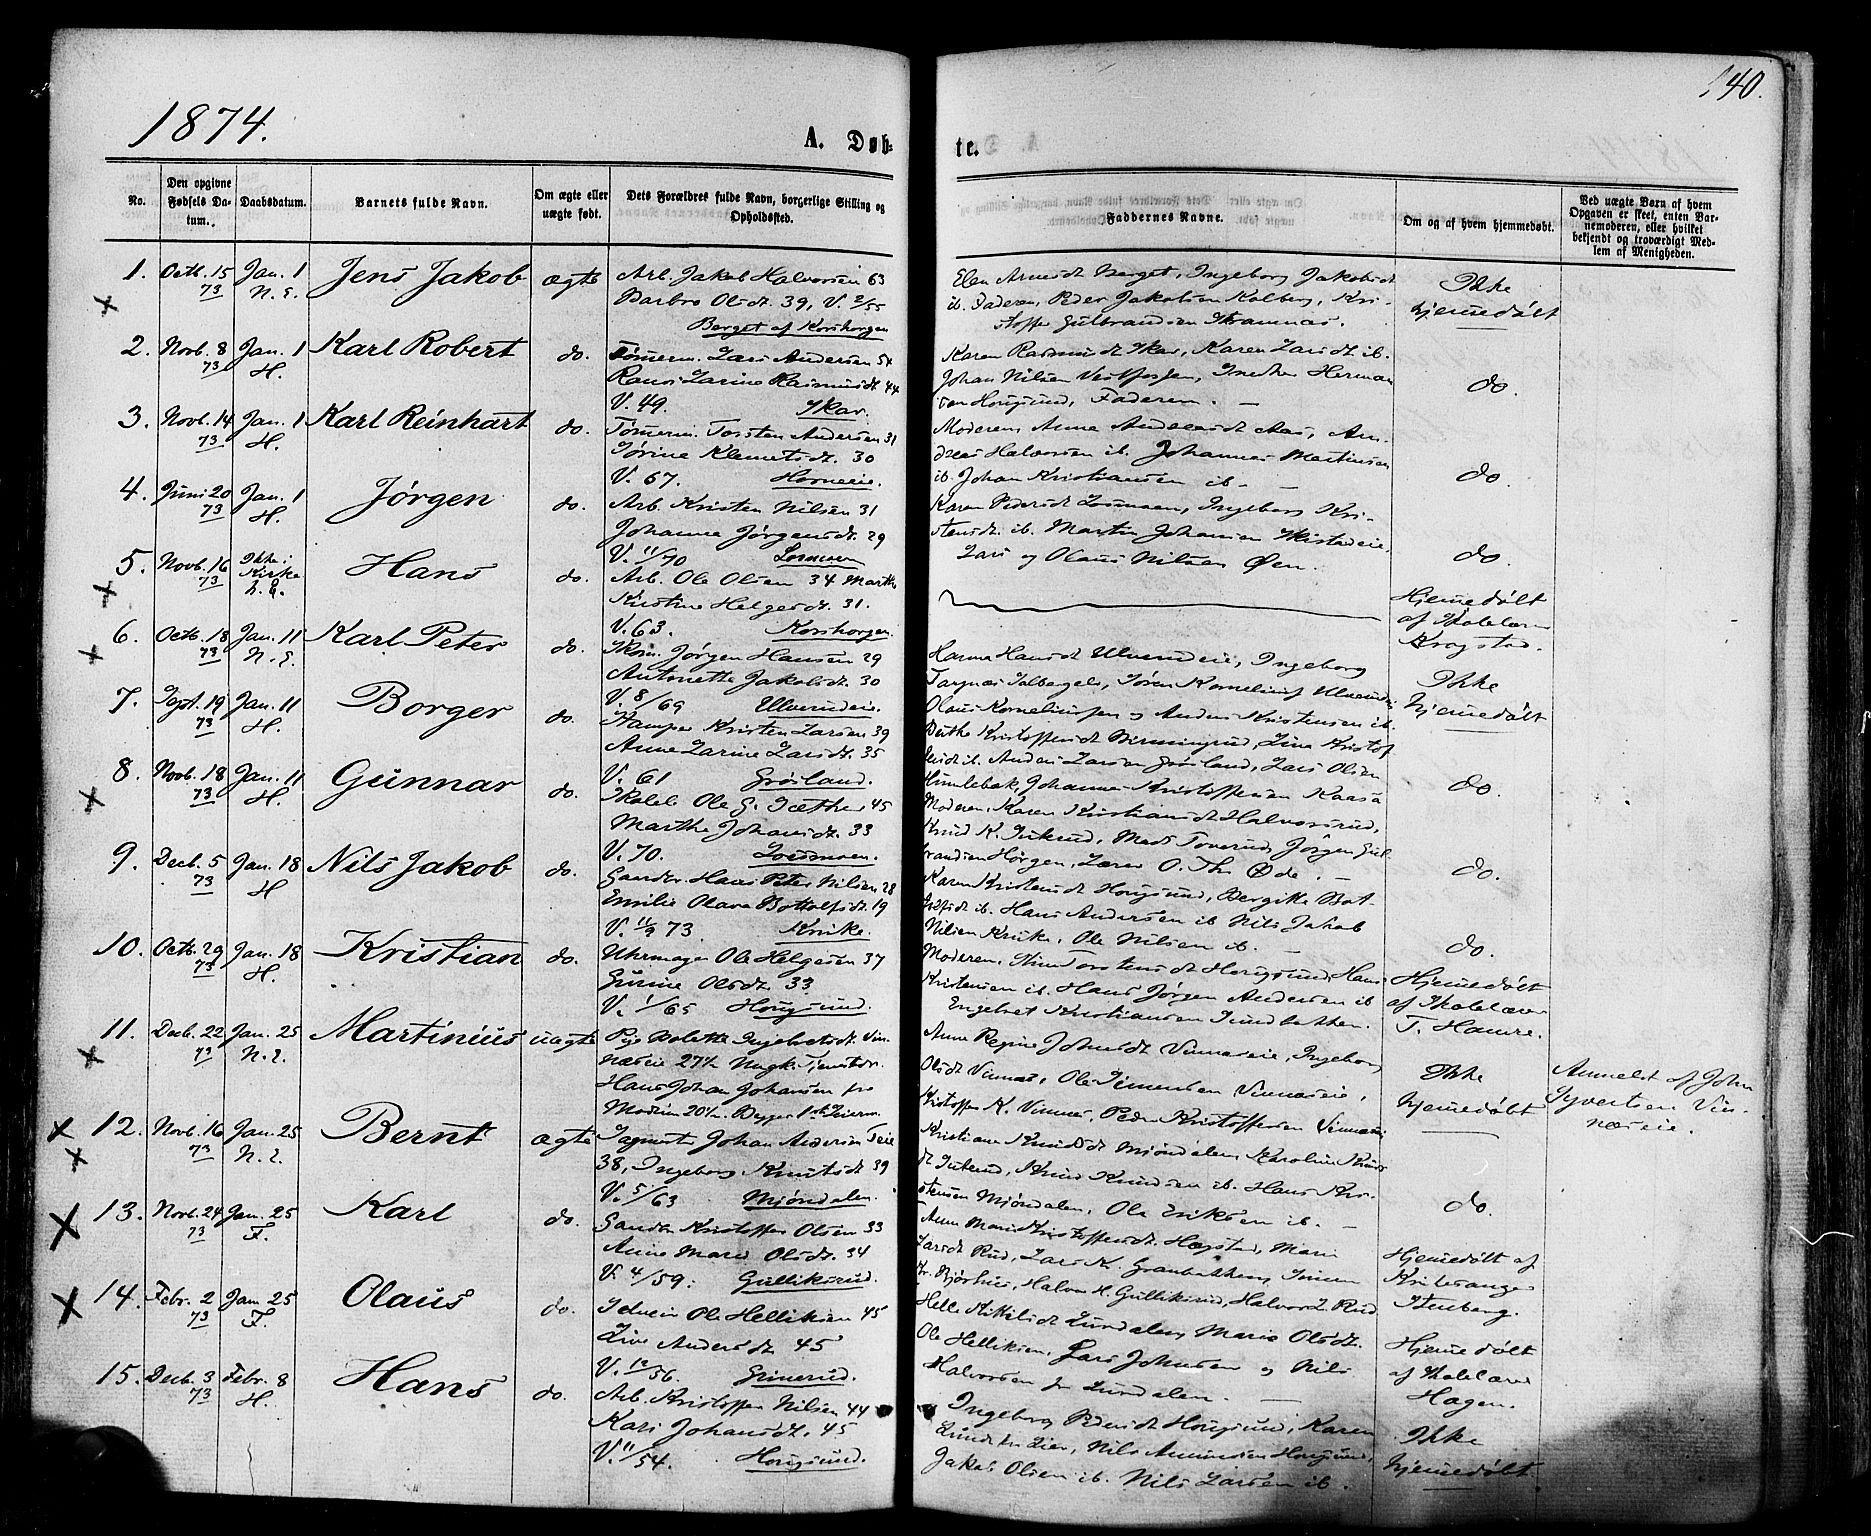 1874.
A. Døb-
te.
140.
No.
Den opgivne Fødsels Da-tum.
Daabsdatum.
Barnets fulde Navn.
Om ægte eller uægte født.
Dets Forældres fulde Navn, borgerlige Stilling og Opholdssted.
Faddernes Navne.
Om og af hvem hjemmedøbt.
Ved uægte Børn af hvem Opgaven er skeet, enten Bar-nemoderen, eller hvilket bekjendt og troværdigt Med-lem af Menigheden.
1. Octb. 15 73 Jan. 1 N.E. Jens Jakob ægte
Arb. Jakob Halvorsen 63
Barbro Olsdt. 39, V. 2/55
Berget af Korshorgen
Elen Arnesdt Berget, Ingeborg Jakobsdt
ib. Faderen, Peder Jakobsen Kolberg, Kri-
stoffer Gulbrandsen
Ikke
hjemmedøbt
2. Novb. 8 73 Jan. 1 H. Karl Robert do.
Tømerm. Lars Andersen 54
Karen Rasmusdt Skar, Karen Larsdt ib.
Johan Nilsen Vestfossen, Herman
V. 49. Skar.
sen Hougsund, Faderen.
do.
3. Novb. 14 73 Jan. 1 H. Karl Reinhart do.
Tømerm. Torsten Andersen 31
Jørine Klemetsdt. 30
V. 67. Horneeie.
Moderen, Anne Aas, An-
dreas Halvorsen ib. Johannes Martinsen
ib. Johan Kristiansen ib.
do.
4. Juni 20 73 Jan. 1 H. Jørgen do.
Arb. Kristen Nilsen 31
Johanne Jørgensdt 29
V. 11/70 Loesmoen
Karen Pedersdt Loesmoen, Ingeborg Kri-
stensdt ib. Martin Johansen
Lars og Olaus Nilsen Øen.
do.
5. Novb. 16 73 Ikke i Kirke Hans do.
Arb. Ole Olsen 34 Marthe
Kirstine Helgesdt. 31.
V. 63. Korshorgen.
Hjemmedøbt
af Skolelærer
Krogstad.
6. Octb. 18 73 Jan. 11 N.E. Karl Peter do.
Skom. Jørgen Hansen 29
Antonette Jakobsdt. 30
V. 8/69 Ulverudeie.
Hanna Hansdt Ulverudeie, Ingeborg
Søren Korneliusf Ulverud
Olaus Korneliussen og Anders Kristensen ib.
Ikke
hjemmedøbt
7. Sept. 19 73 Jan. 11 H. Borger do.
Kristen Larsen 39
Anne Larine Larsdt. 35
V. 61 Grøsland.
Berthe Kristoffersdt Birmingrud, Line Kristof
fersdt ib. Anders Larsen Grøsland, Lars Olsen
Humlebæk, Johannes Kristoffersen Kaasa
do.
8. Novb. 18 73 Jan. 11 H. Gunnar do.
Skolel. Ole G. Sæther 45
Marthe Johansdt. 33
V. 70. Loesmoen.
Moderen, Karen Kristiansdt Halvorsrud,
Knud K. Juterud, Mads Toverud, Jørgen Gul
brandsen Hørgen, Lærer O. Th. Øde.
do.
9. Decb. 5 73 Jan. 18 H Nils Jakob do.
Gaardbr. Hans Peter Nilsen 28
Emilie Olava Bottolfsdt. 19
V. 11/9 73. Krike.
Karen Kristensdt Hougsund, Bergitte Bot-
tolfsdt ib. Hans Andersen ib Nils Jakob
Nilsen Krike, Ole Nilsen ib.
do.
10. Octb. 29 73 Jan. 18 H. Kristian do.
Uhrmager Ole Helgesen 37
Gurine Olsdt. 33
V. 1/65 Hougsund.
Moderen, Torstensdt Hougsund, Hans
Kristensen ib. Hans Jørgen Andersen ib
Engebret Kristiansen
Hjemmedøbt
af Skolelærer
T. Hamre.
11. Decb. 22 73 Jan. 25 N.E. Martinius uægte
Pige Nolette Ingebretsdt. Vin-
næseie 27½ Ungk. Tjenestkr.
Hans Johan Johansen fra
Modum 20½. Begges 1ste Leierm.
Anne Regine Johnsdt Vinnæseie, Ingeborg
Olsdt Vinnæs, Ole Simensen Vinnæseie,
Kristoffer K. Vinnæs, Peder Kristoffersen Vinnæs
Ikke
hjemmedøbt
Anmeldt af John
Syvertsen Vin-
næseie.
12. Novb. 16 73 Jan. 25 N.E. Bernt ægte
Sagmester Johan Andersen Teie
38, Ingeborg Knutsdt 39
V. 5/63 Mjøndalen.
Kristiane Knudsdt Mjøndalen, Karoline Knuds
dt Juterud, Knud Knudsen ib. Hans Kri-
stensen Mjøndalen, Ole Eriksen ib.
do.
13. Novb. 24 73 Jan. 25 F. Karl do.
Gaardbr. Kristoffer Olsen 33
Anne Marie Olsdt. 34
V. 4/59. Gulliksrud.
Anne Marie Kristoffersdt. Hægstad, Marie
Larsdt Rud, Lars K. Granbakken, Simen
Halvor H. Gulliksrud, Halvor L. Rud
Hjemmedøbt af
Stenberg.
14. Febr. 2 73 Jan. 25 F. Olaus do.
Selveier Ole Helliksen 45
Live Andersdt 45
V. 12/56. Grinerud.
Helle Mikkelsdt Lurdalen, Marie Olsdt.
Ole Helliksen, Lars Johnsen og Nils
Halvorsen fr Lurdalen.
Hjemmedøbt
af Skolelærer
Hagen.
15. Decb. 3 73 Febr. 8 H. Hans do.
Arb. Kristoffer Nilsen 44
Kari Johansdt. 45
V. 11/54. Hougsund.
Ingeborg Pedersdt Hougsund, Karen
Lier, Nils Amundsen Hougsund,
Jakob Olsen ib. Nils Larsen ib.
Ikke
hjemmedøbt